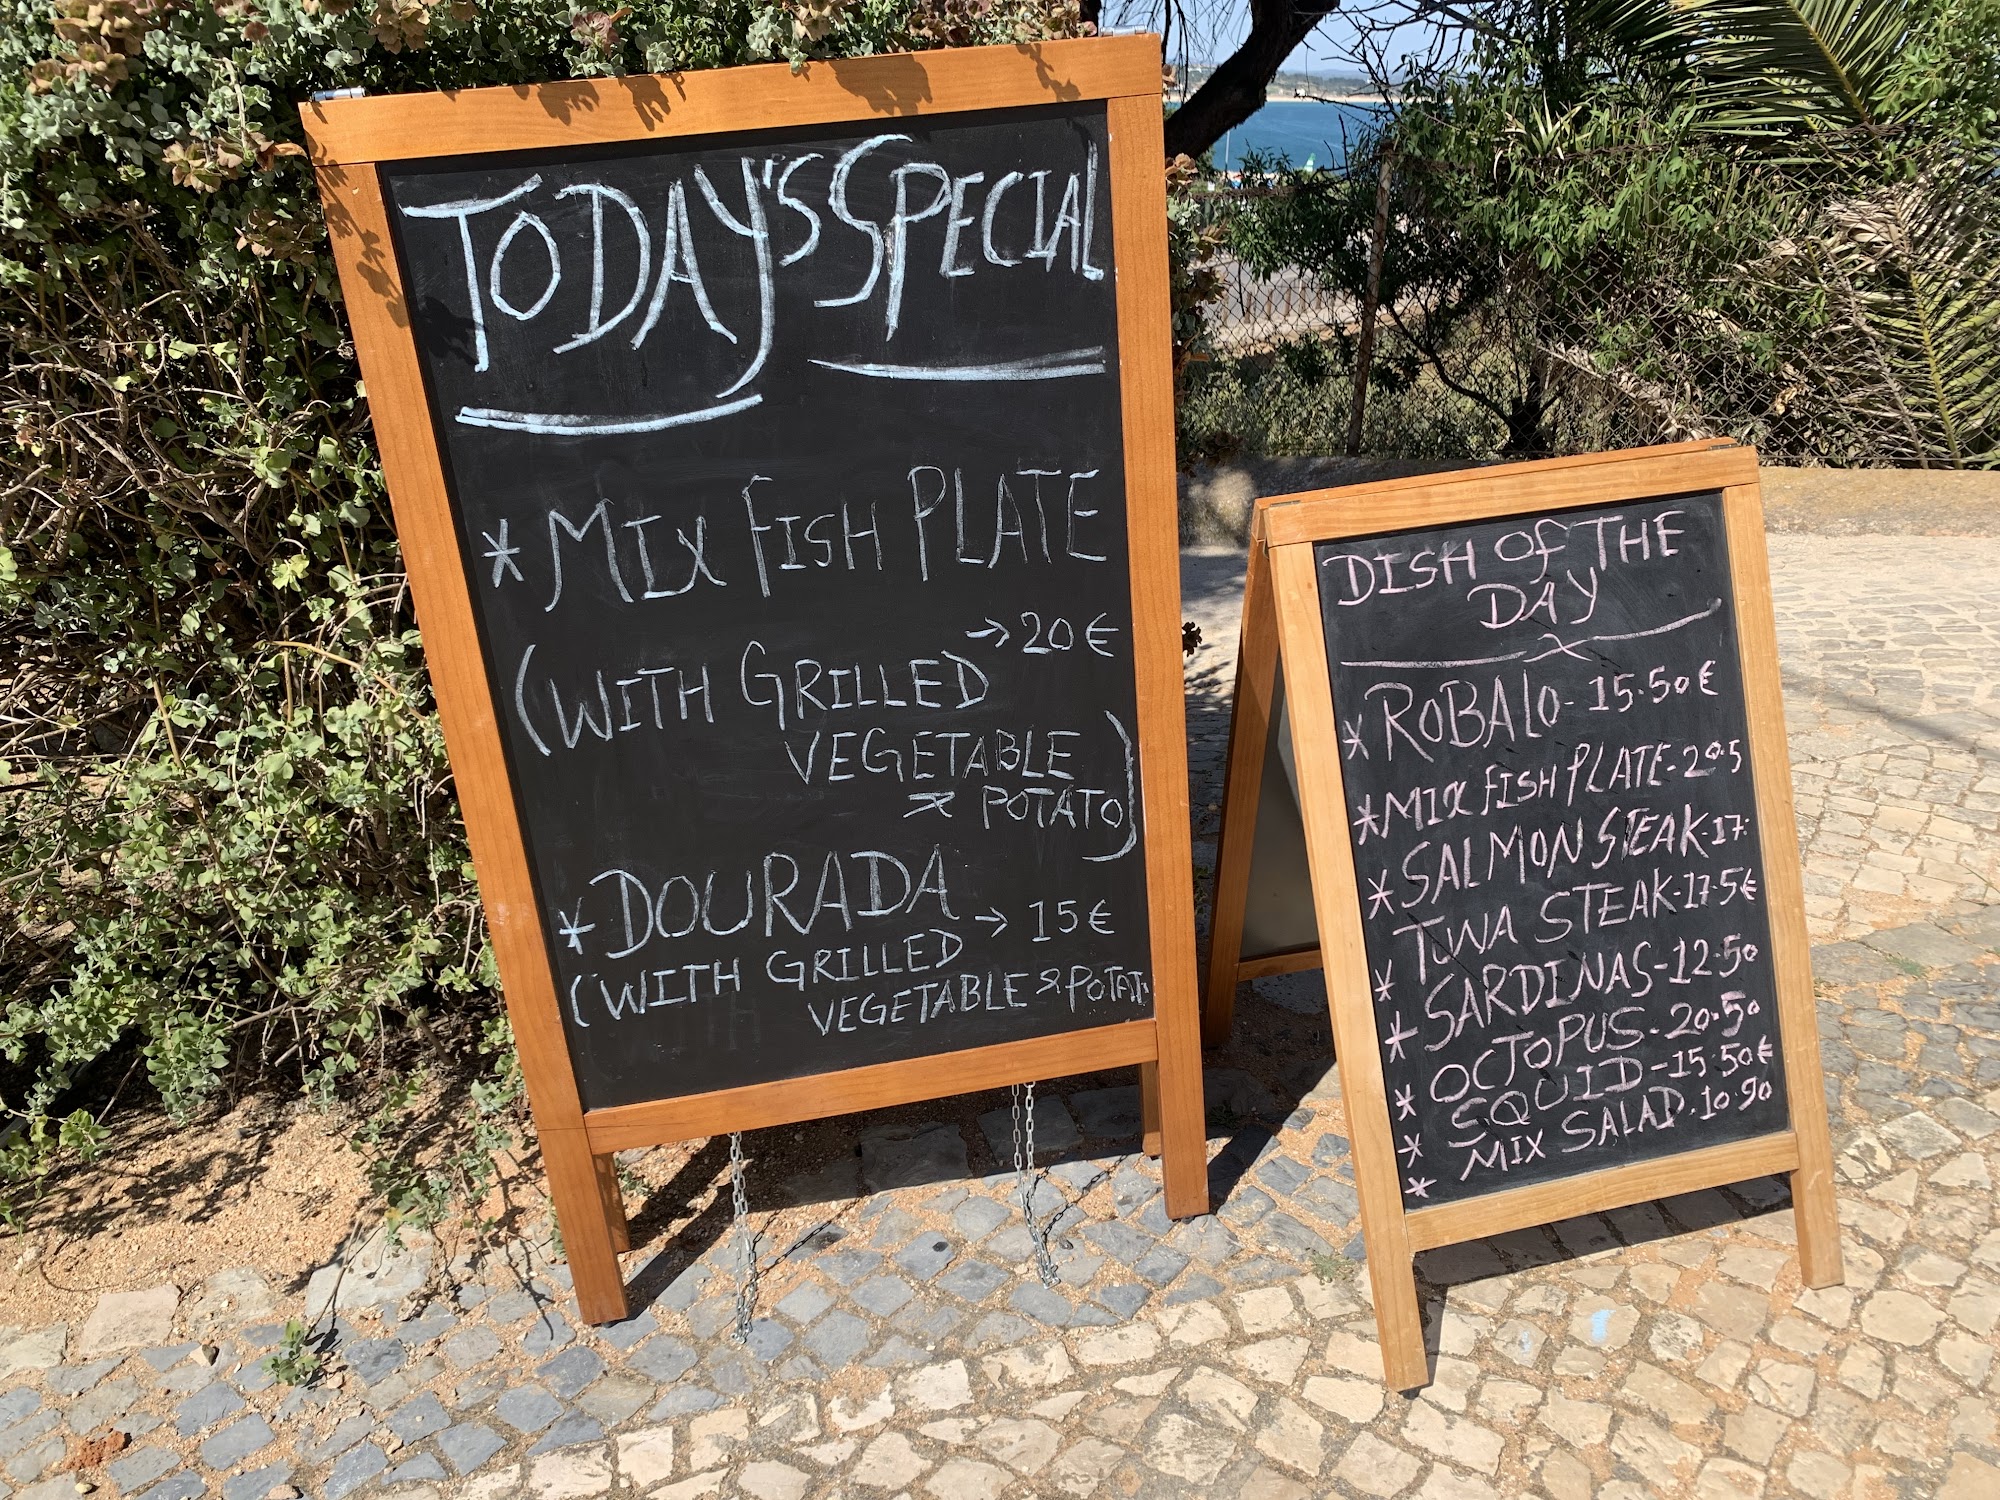 TODAY'S SPECIAL
* MIX FISH PLATE
→ 20 €
(WITH GRILLED
VEGETABLE
& POTATO)
* DOURADA
→ 15 €
(WITH GRILLED
VEGETABLE & POTAT
DISH OF THE
DAY
* ROBALO - 15.50 €
* MIX FISH PLATE - 20.5
* SALMON STEAK - 17.
* TUNA STEAK - 17.5€
* SARDINAS - 12.50
* OCTOPUS - 20.50
* SQUID - 15.50€
* MIX SALAD - 10.90